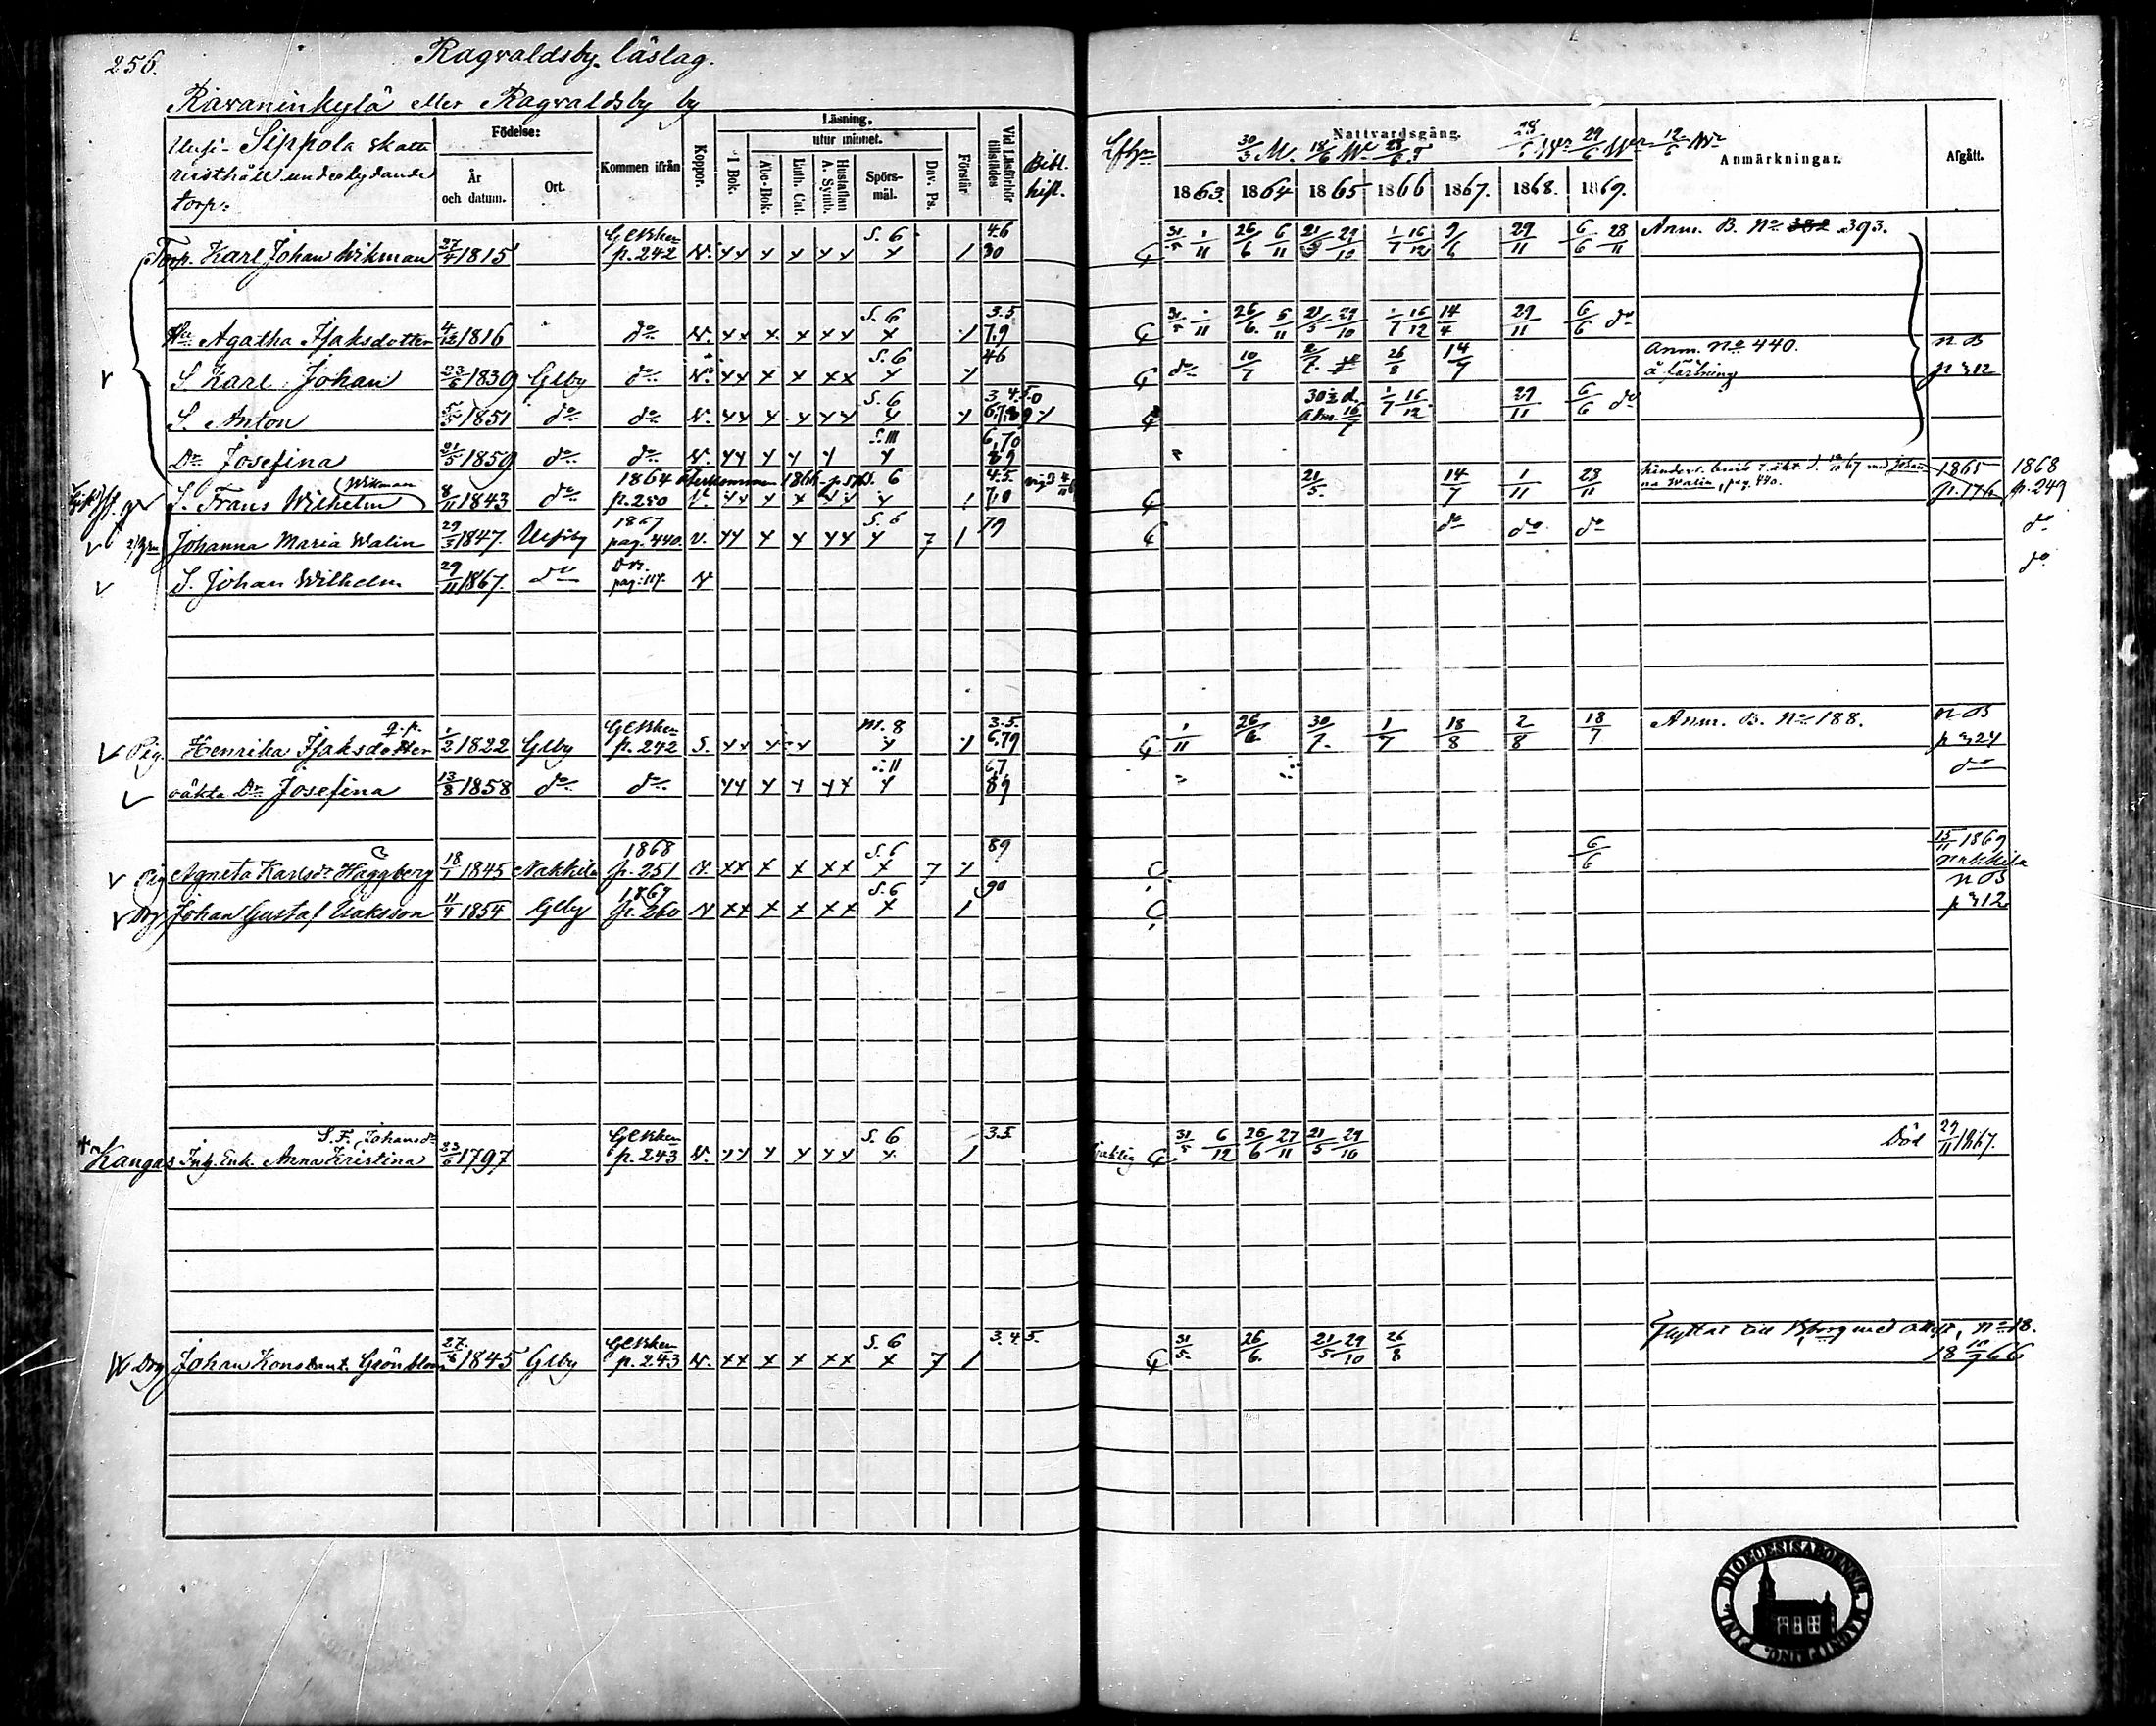 256.
Ragvaldsby läslag.
Ravaninkylä eller Ragvaldsby by
Uusi- Sippola skatte
rusthåll underlydande
torp:
Födelse:
År och datum.
Ort.
Kommen ifrån
Koppor.
Läsning,
I Bok.
utur minnet.
Abc-Bok.
Luth. Cat.
Hustaflan A. Symb.
Spörsmål.
Dav. Ps.
Förstår
Vid Läsförhör tillstädes
Bibl. hist.
Nattvardsgång.
30/3 M. 18/6
1863. 1864 1865 1866 1867. 1868. 1869.
Anmärkningar.
Afgått.
Torp. Karl Johan Wikman 27/4 1815 Gl Bken p. 242 N. S. 6 46 30 1/11 26/6 6/11 21/5 29/10 1/7 16/12 9/6 29/11 6/6 28/11 Anm. B. No 382 393.
Hu Agatha Isaksdotter 4/12 1816 do N. S. 6 3.5. 7.9 26/6. 6/11 21/5 29/10 1/7 16/12 14/4 29/11 6/6 do
S. Karl Johan 23/5 1839 Glby do N. S. 6 46 do 10/7 26/8 14/7 Anm. No 440. å läsning NB p 312
S. Anton 5/5 1851 do do N. S. 6 1/7 16/12 29/11 6/6 do
Dr Josefina 21/5 1859 do do N. S. III 6,70 89
S. Frans Wilhelm (Wikman) 8/11 1843 do 1864 p. 250 Återkommen 1866 S. 6 4.5. 7,0 21/5. 14/7 1/11 28/11 1865 p. 176 1868 p. 249
Johanna Maria Walin 29/3 1847. Ulfsby 1867 pag. 440. v. S. 6 7 79 do do do do
S. Johan Wilhelm 29/11 1867. do pag: 117. N do
Pig. Henrika Isaksdotter 1/2 1822 Glby Gl Bken p. 242 S. M. 8 3.5. 6,79 1/11 26/6. 30/7. 1/7 18/8 2/8 18/7 Anm. B. No 188. NB p 324
oäkta Dr Josefina 13/8 1858 do do 67, 89 do
Pig Agneta Karlsdr Häggberg 18/1 1845 Nakkila 1868 p. 251 N. S. 6 7 89 6/6 15/11 1869 Nakkila
Drg Johan Gustaf Isaksson 11/4 1854 Glby 1869 p. 260 N S. 6 90 NB p 312
Kangas Inh. Enk. Anna Kristina S. F. Johansdr 23/6 1797 Gl Bken p. 243 N. S. 6 3.5. sjuklig 31/5 6/12 26/6 27/11 21/5 29/10 Död 29/11 1867.
Drg Johan Konstant. Grönblom 27/6 1845 Glby Gl Bken p. 243 N. S. 6 7 3.4.5. 31/5. 26/6. 21/5 29/10 26/8 Flyttat till Bborg med att. No 18. 1866
DIOECESIS ABOENSIS MAGNI DUC. FINL.